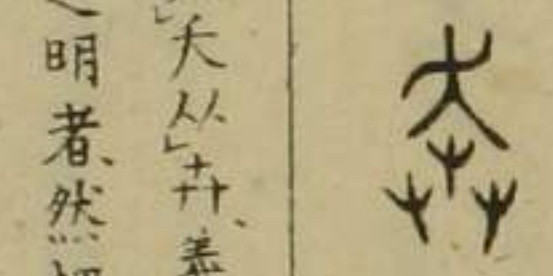 奔
」夭从」卉、
明者、然